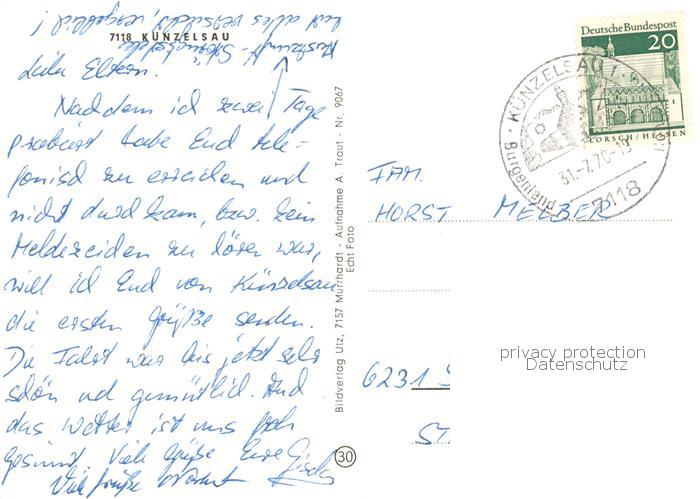 7118 KÜNZELSAU
hat alles versucht, vergeblich!
Liebe Eltern.
Nachdem ich zwei Tage
probiert habe Euch tele-
fonisch zu erreichen und
nicht durchkam, bzw. kein
Meldezeichen zu hören war,
will ich Euch von Künzelsau
die ersten Grüße senden.
Die Fahrt war bis jetzt sehr
schön und gemütlich. Und
das Wetter ist uns
gesinnt. Viele Grüße Eure Gisela
Viele Grüße
Bildverlag Utz, 7157 Murrhardt - Aufnahme A. Traut - Nr. 9067
Echt Foto
30
Deutsche Bundespost
20
LORSCH/HESSEN
KÜNZELSAU 1
Burgenland
31.-7.70-19
7118
FAM.
HORST MELBER
6231 S
ST
privacy protection
Datenschutz